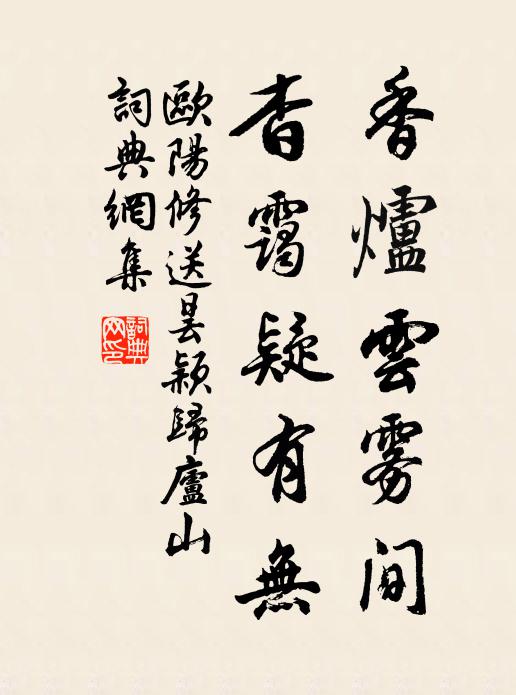 香爐雲霧間
杳靄疑有無
歐陽修送曇穎歸廬山
詞典網集
詞典
网印